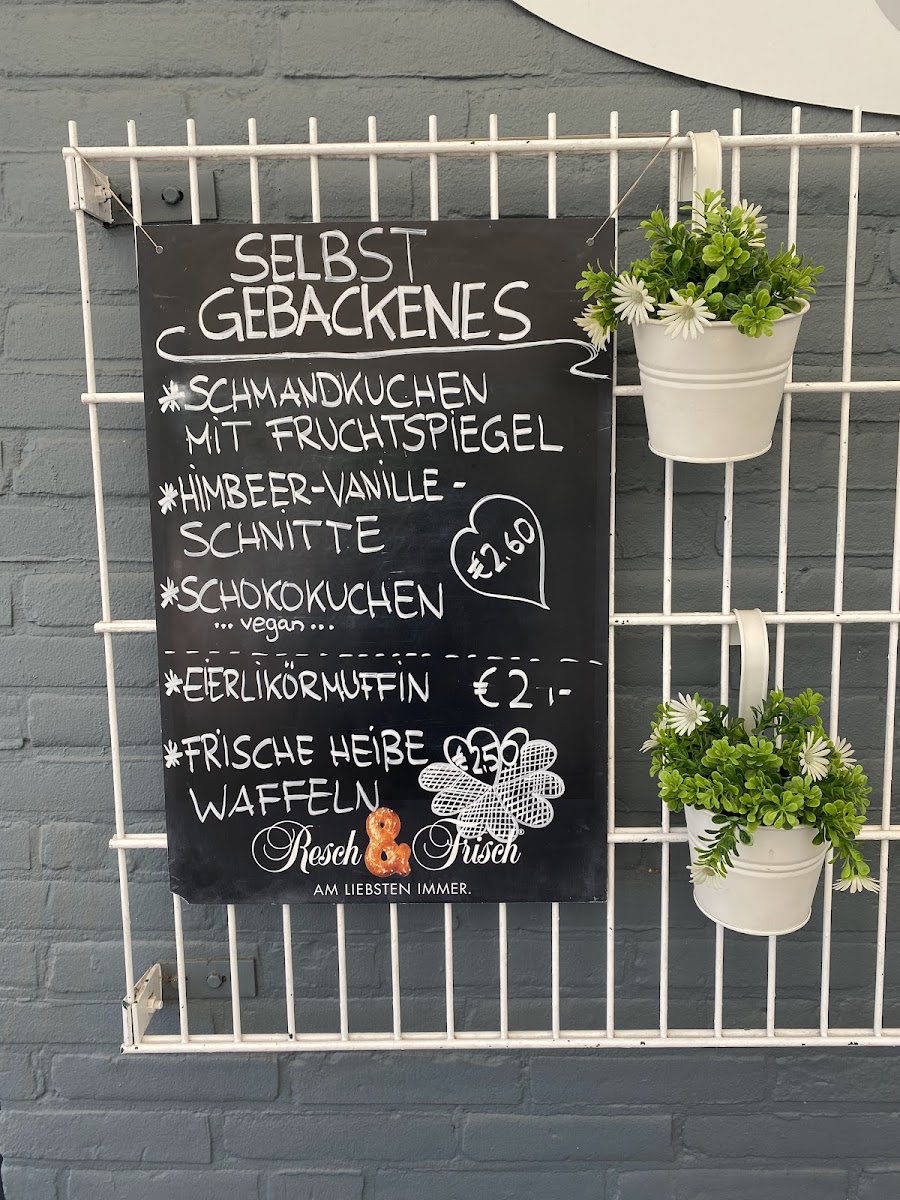 SELBST
GEBACKENES
*SCHMANDKUCHEN
MIT FRUCHTSPIEGEL
*HIMBEER-VANILLE-
SCHNITTE
€2.60
*SCHOKOKUCHEN
... vegan ...
*EIERLIKÖRMUFFIN €2,-
*FRISCHE HEIßE
WAFFELN
€2.50
Resch & Frisch®
AM LIEBSTEN IMMER.